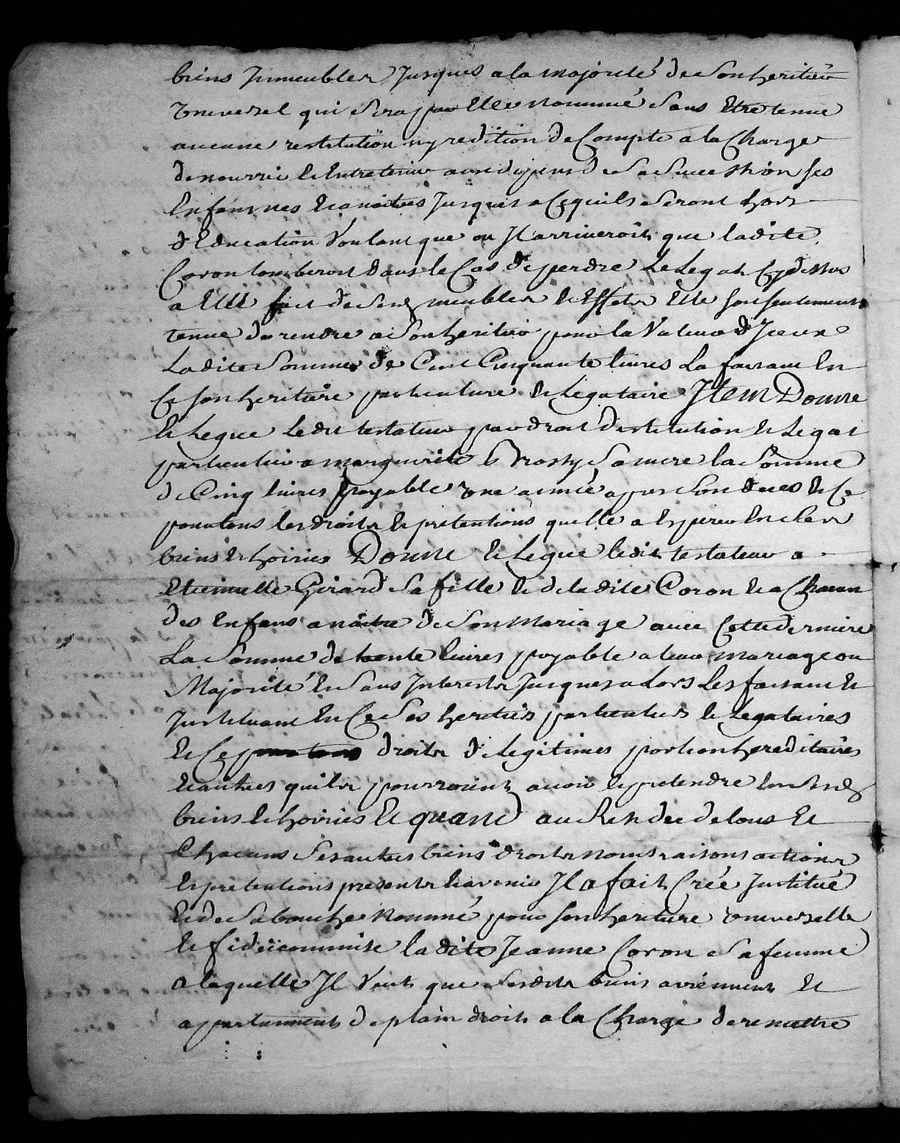 biens Immeubles Jusques a la majorité de Son heritier
Vniversel qui Sera par Elle Nommé Sans Etre tenue
aucune restitution ny redition de Compte a la Charge
de nourrir Et Entretenir aux depens de Sa Succession ses
Enfans nes Et a naitre Jusques a Cequils Seront hors
d'Education Voulant que ou Il arriveroit que ladite
Coron tomberoit dans le Cas de perdre Le Legat Cy dessus
a Elle fait de Ses meubles Et Effets Elle Soit Seulement
tenue de rendre a Son heritier pour la Valeur d'Iceux
La dite Somme de Cent Cinquante livres La faisant En
Ce Son heritiere particuliere Et Legataire Item Donne
Et Legue Ledit testateur par droit d'institution Et Legat
particulier a marguerite Sa mere la Somme
de Cinq livres payable vne année apres Son deces Et Ce
pour tous les droits Et pretentions quelle a Esperer En Ses
biens Et hoiries Donne Et Legue ledit testateur a
Girard Sa fille Et de ladite Coron Et a Chacun
des Enfans a naitre de Son Mariage avec Cette derniere
La Somme de trente livres payable a leur mariage ou
Majorité En Sans Interets Jusques alors Les faisant Et
Instituant En Ce Ses heritiers particuliers Et Legataires
Et Ce droits de legitimes portion hereditaires
Et autres quils pourroient avoir Et pretendre En Ses
biens Et hoiries Et quand au Residu de tous Et
Chacuns Ses autres biens droits noms raisons actions
Et pretentions presents Et avenir Il a fait Créé Institué
Et de Sa bouche Nommé pour Son heritiere vniverselle
Et fideicommise ladite Jeanne Coron Sa femme
a laquelle Il Veut que Sesdits biens aviennent Et
apartiennent de plain droit a la Charge de remettre